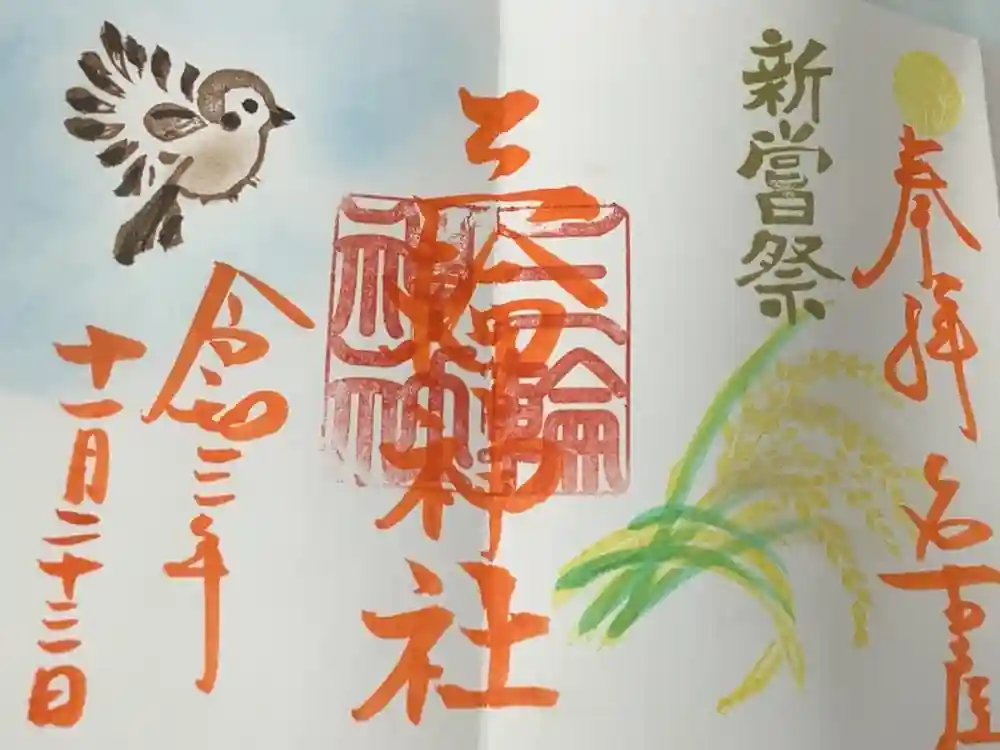 奉拝
名古屋
新嘗祭
三輪神社
三輪神社
令和三年
十一月二十三日